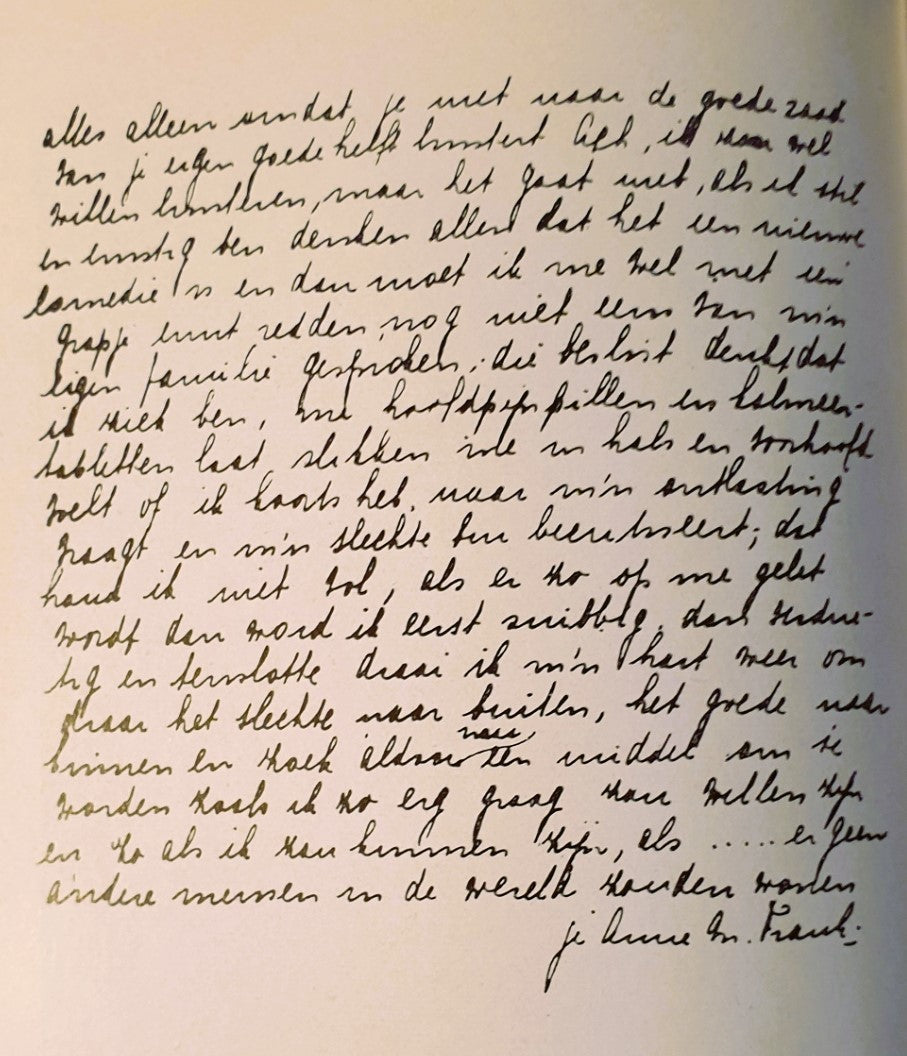 alles alleen omdat je niet naar de goede raad
van je eigen goede helft luistert. Och, ik zou wel
willen luisteren, maar het gaat niet, als ik stil
en ernstig ben denken allen dat het een nieuwe
comedie is en dan moet ik me wel met een
grapje eruit redden, nog niet eens van m'n
eigen familie gesproken, die beslist denkt dat
ik ziek ben, me hoofdpijnpillen en kalmeer-
tabletten laat slikken me in hals en voorhoofd
voelt of ik koorts heb, naar m'n ontlasting
vraagt en m'n slechte bui becritiseert; dat
houd ik niet vol, als er zo op me gelet
wordt dan word ik eerst snibbig, dan verdrie-
tig en tenslotte draai ik m'n hart weer om
draai het slechte naar buiten, het goede naar
binnen en zoek aldoor naar een middel om te
worden zoals ik zo erg graag zou willen zijn
en zo als ik zou kunnen zijn, als ..... er geen
andere mensen in de wereld zouden wonen
je Anne M. Frank.